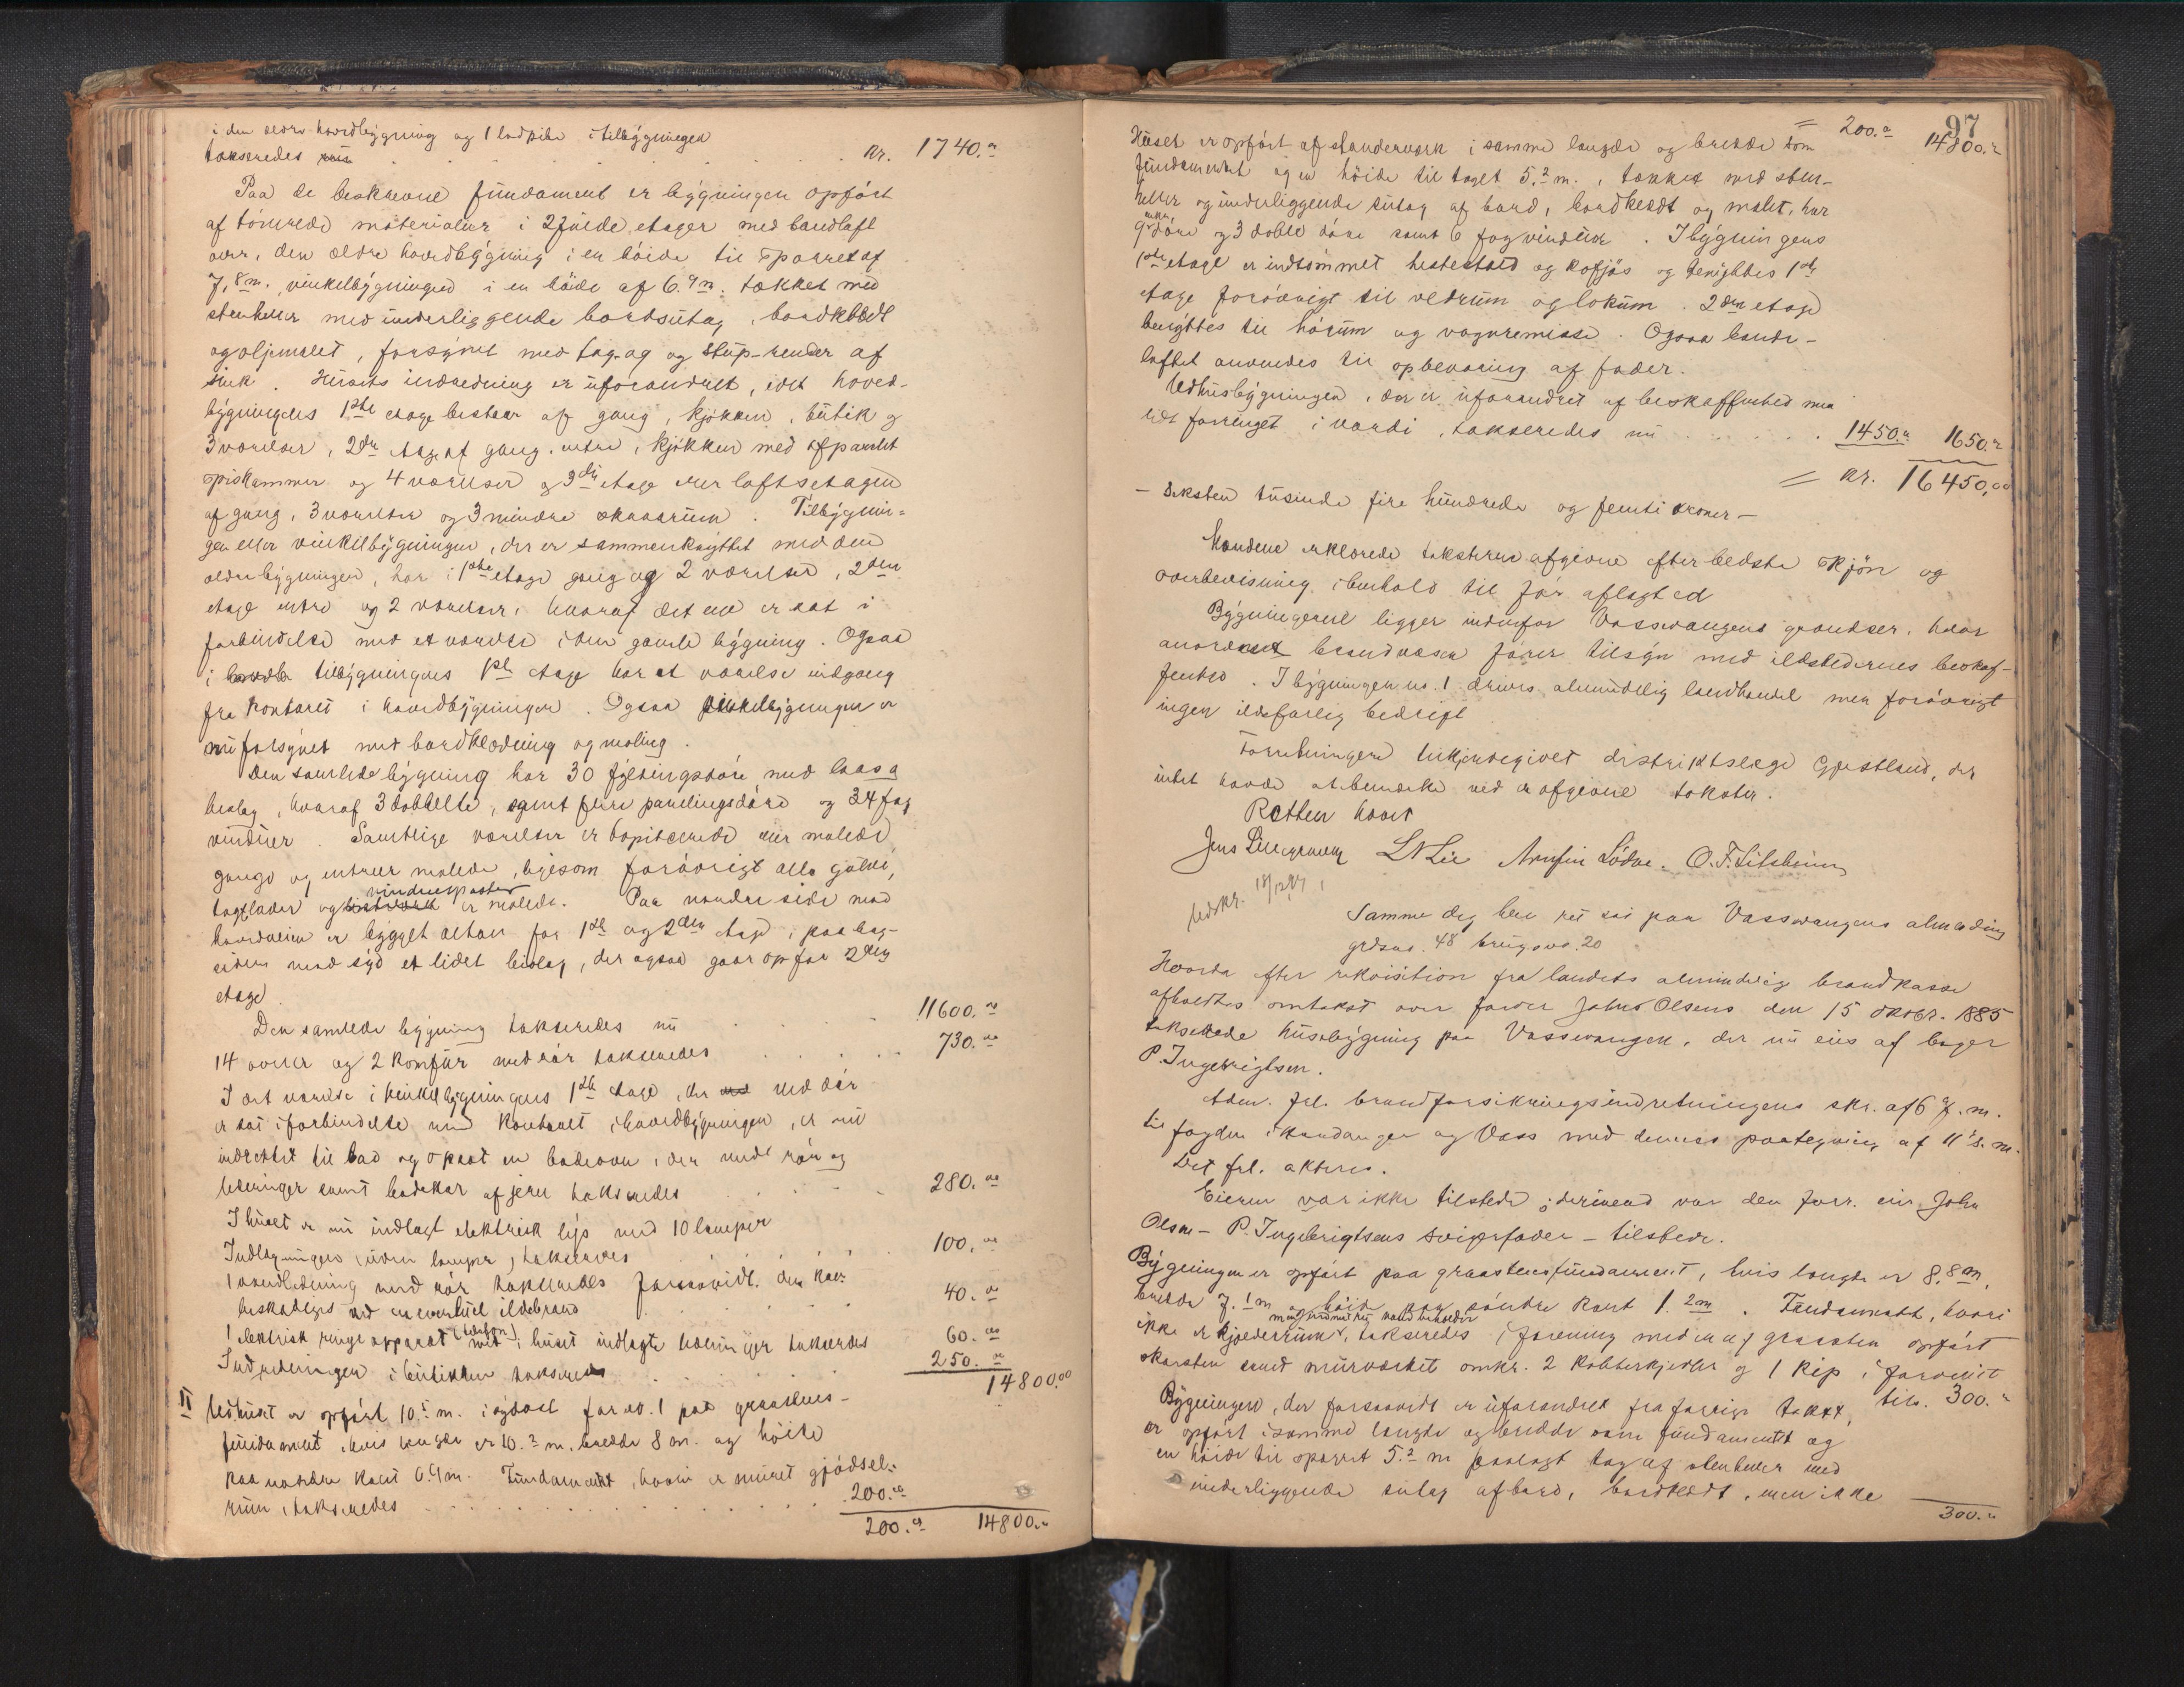 i den ældre hovedbygning og 1 ladpibe i tilbygningen
takseredes . . . . Kr. 1740.00
Paa de beskrevne fundament er bygningen opført
af tømrede materialier i 2 fulde etager med bandloft
over, den ældre hovedbygning i en höide til sparret af
7,8 m. vinkelbygningen i en höide af 6.9 m. tækket med
stenheller med underliggende bordsutag, bordklædt
og oljemalet, forsynet med tag- og stup-render af
sink. Husets indredning er uforandret, idet hoved-
bygningens 1ste etage bestaar af gang, kjökken, butik og
3 værelser, 2den etage af gang, entre, kjökken med afpanelet
spiskammer og 4 værelser og 3die etage eller loftsetagen
af gang, 3 værelser og 3 mindre skraarum. Tilbygnin-
gen eller vinkelbygningen, der er sammenknyttet med den
ældre bygningen, har i 1ste etage gang og 2 værelser, 2den
etage entre og 2 værelser, hvoraf det ene er sat i
forbindelse med et værelse i den gamle bygning. Ogsaa
i tilbygningens 1ste etage har et værelse indgang
fra kontoret i hovedbygningen. Ogsaa vinkelbygningen er
nu forsynet med bordklædning og maling.
Den samlede bygning har 30 fyldingsdöre med laas og
beslag, hvoraf 3 dobbelte, samt flere panelingsdöre og 34 fag
vinduer. Samtlige værelser er tapiserede eller malede,
gange og entreer malede, ligesom forövrigt alle gulve,
tagflader og vinduesposter er malede. Paa nordre side mod
hovedveien er bygget altan for 1ste og 2den etage, paa bag-
siden mod syd et lidet beslag, der ogsaa gaar op for 2den
etage.
Den samlede bygning takseredes nu . . . 11600.00
14 ovner og 2 komfur med rör takseredes . . . 730.00
I det værelse i vinkelbygningens 1ste etage, der ved dör
er sat i forbindelse med kontoret i hovedbygningen, er nu
indrettet til bad og opsat en badeovn, der med rör og
ledninger samt badekar af jern takseredes . . . 280.00
I huset er nu indlagt elektrisk lys med 10 lamper
Indlægningen uden lamper, takseredes . . . 100.00
1 vandledning med rör takseredes forsaavidt den kan
beskadiges ved en eventuel ildebrand . . . 40.00
1 elektrisk ringeapparat (telefon) med i huset indlagte ledninger takseredes 60.00
Indredningen i butikken takseres . . . 250.00
14800.00
II Udhuset er opført 10.5 m. i sydost for no. 1 paa graastens-
fundament, hvis længde er 10.3 m. bredde 8 m. og höide
paa nordre kant 0.9 m. Fundamentet, hvori er muret gjödsel-
rum, takseredes . . . 200.00
200.00 14800.00
97
= 200.00 14800.00
Huset er opført af standerværk i samme længde og bredde som
fundamentet og en höide til taget 5.2 m., tækket med sten-
heller og underliggende sutag af bord, bordklædt og malet, har
9 enkle döre og 3 doble döre samt 6 fag vinduer. I bygningens
1ste etage er indtömmret hestestald og kofjös og benyttes 1ste
etage forövrigt til vedrum og lokum. 2den etage
benyttes til hörum og vognremisse. Ogsaa band-
loftet anvendes til opbevaring af foder.
Udhusbygningen, der er uforandret af beskaffenhed men
lidt forringet i værdi, takseredes nu . . . 1450.00 1650.00
= Kr. 16450,00
– Seksten tusinde fire hundrede og femti kroner –
Mændene erklærede taksterne afgivne efter bedste skjön og
overbevisning i henhold til för aflagt ed
Bygningerne ligger indenfor Vossevangens grændser, hvor
anordnet brandvæsen förer tilsyn med ildstedernes beskaf-
fenhed. I bygningen no. 1 drives almindelig landhandel men forövrigt
ingen ildsfarlig bedrift
Forretningen tilkjendegivet distriktslæge Gjestland, der
intet havde at bemærke ved de afgivne takster.
Retten hævet
Jens Lillegraven L N Lie Arnfin Lödve. O. F. Litsheim
Udskr. 18/12 97
Samme dag blev ret sat paa Vossevangens almending
grdsno. 48 brugsno. 20
Hvorda efter rekvisition fra landets almindelige brandkasse
afholdtes omtakst over farver John Olsens den 15 oktbr. 1885
takserede husebygning paa Vossevangen, der nu eies af bager
P. Ingebrigtsen.
Adm. frl. brandforsikringsindretningens skr. af 6 f. m.
til fogden i Hardanger og Voss med dennes paategning af 11 s. m.
Det frl. akteres.
Eieren var ikke tilstede; derimod var den forr. eier John
Olsen – P. Ingebrigtsens svigerfader – tilstede.
Bygningen er opført paa graastensfundament, hvis længde er 8.8 m,
bredde 7.1 m og höide paa söndre kant 1.2 m. Fundamentet, hvori
ikke er kjælderrum, takseredes i forening med en af graasten opført
skorsten samt murværket omkr. 2 kobberkjedler og 1 kip i farveriet
til 300.00
Bygningen, der forsaavidt er uforandret fra forrige takst,
er opført i samme længde og bredde som fundamentet og
en höide til sparret 5.2 m paalagt tag af stenheller med
underliggende sutag af bord, bordklædt, men ikke
300.00